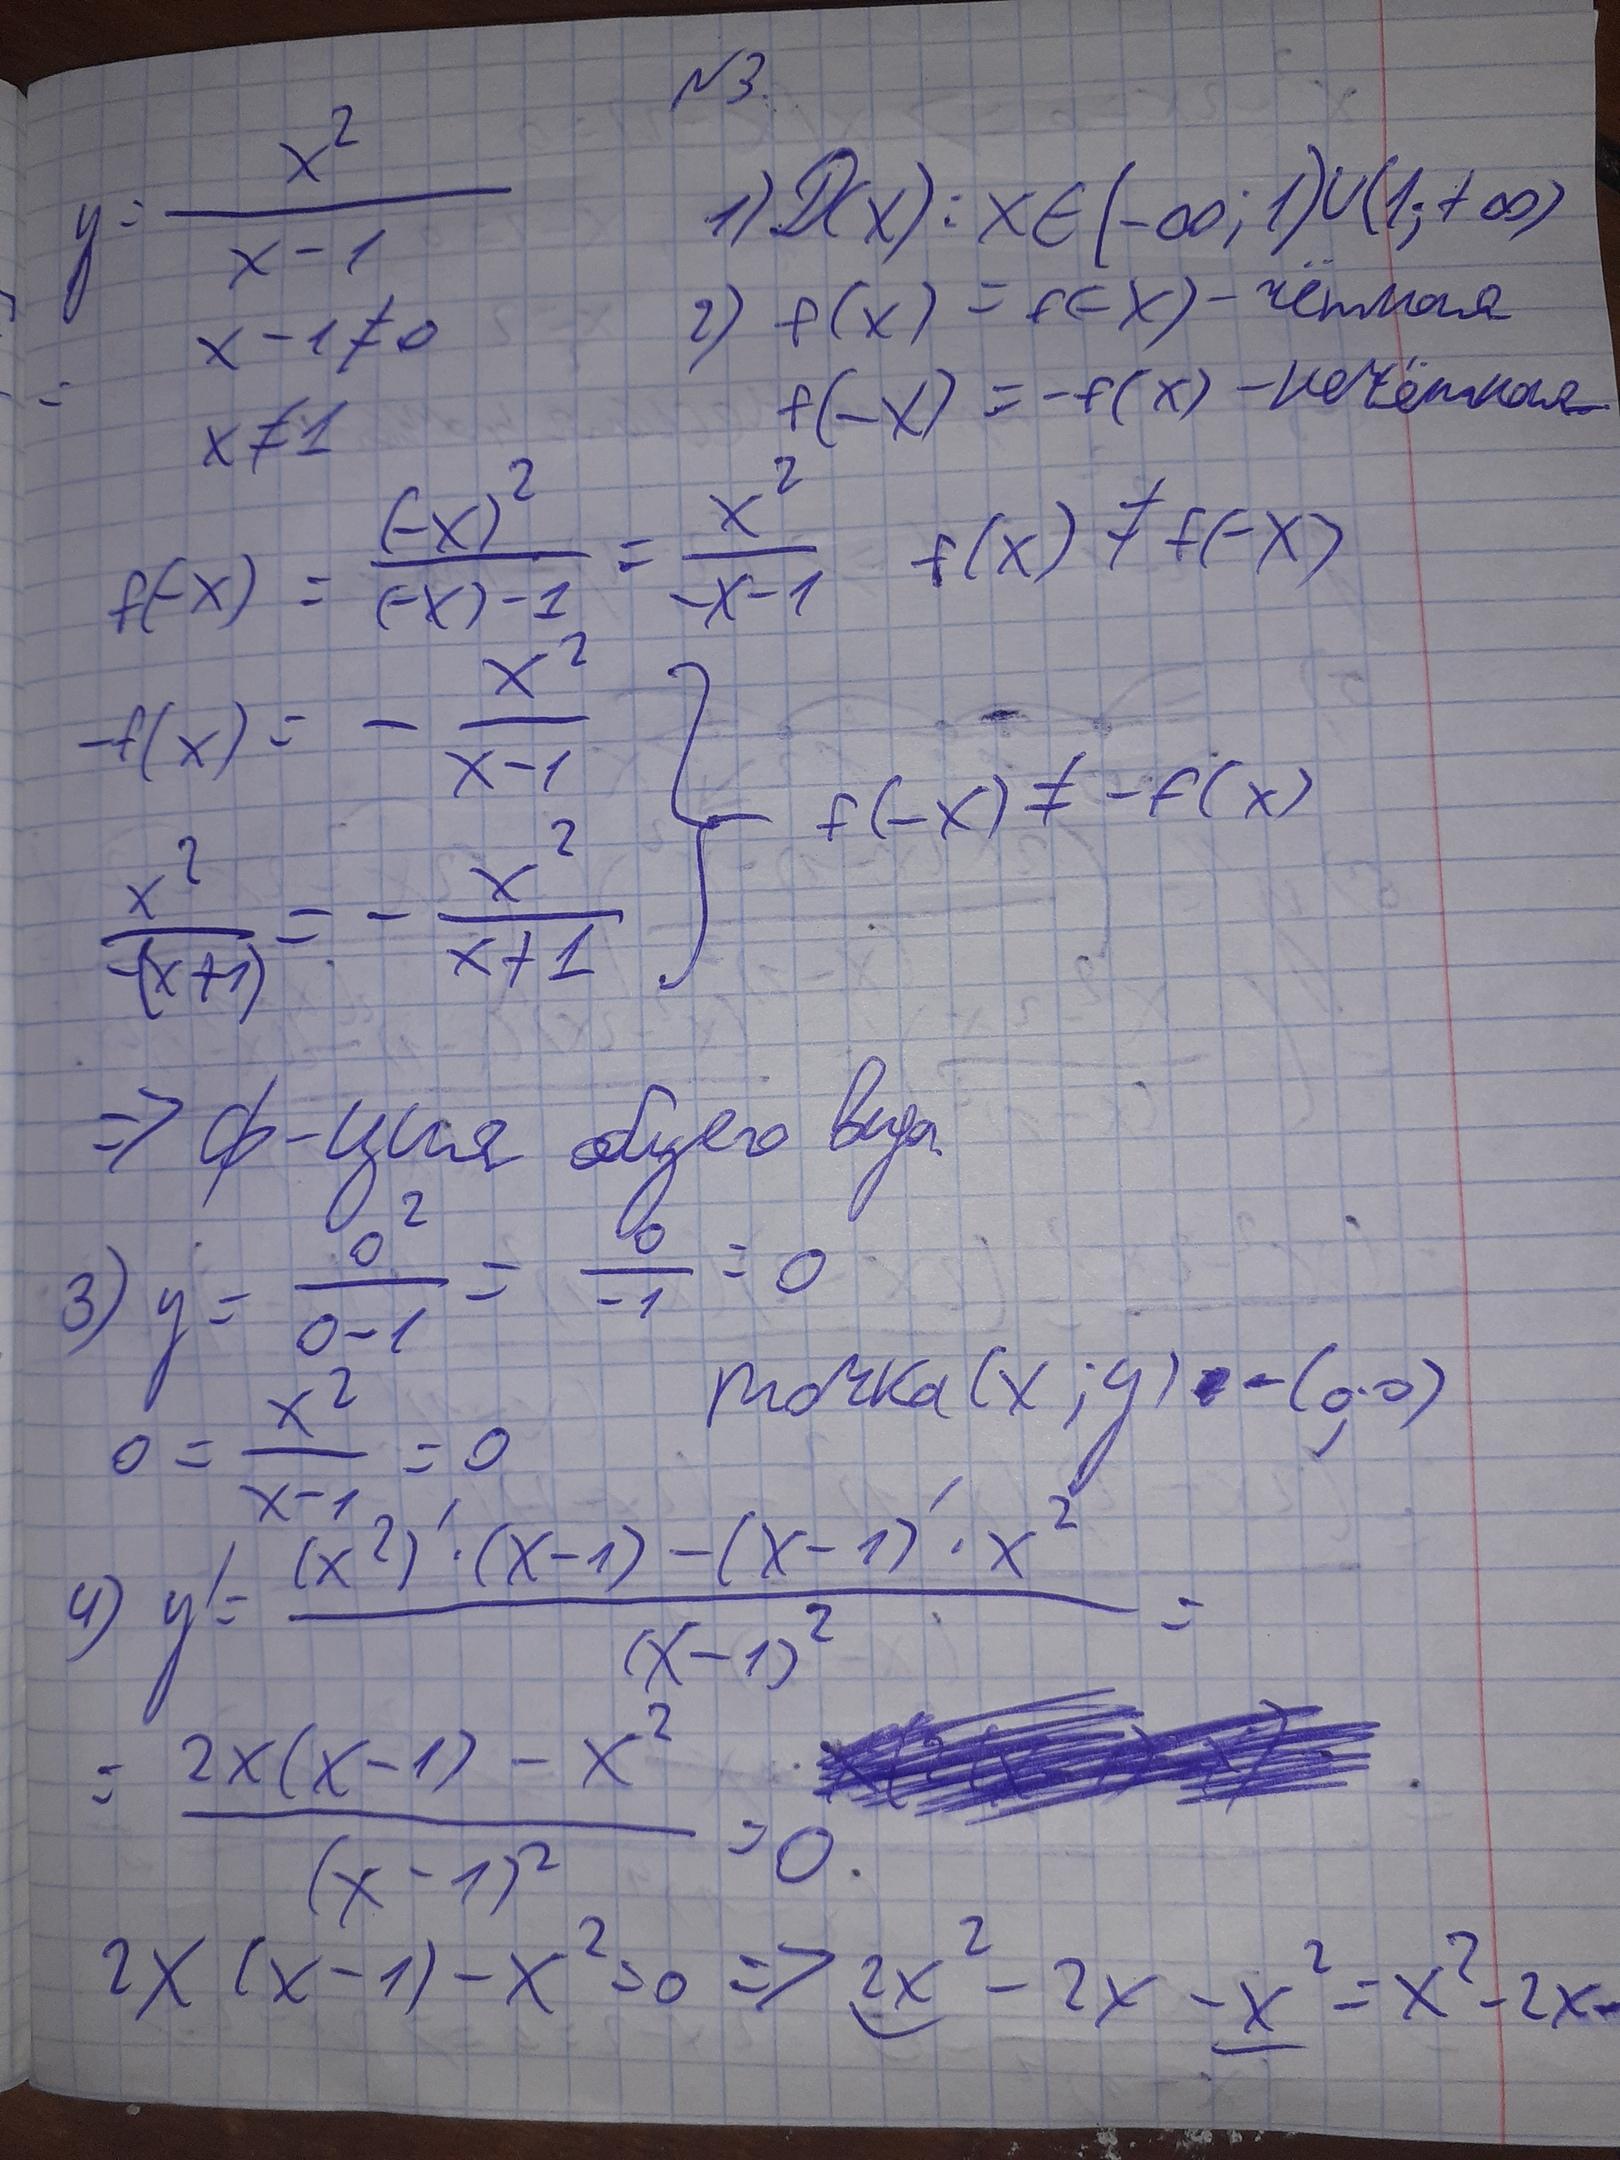 N3.
y = x² / (x-1)
x-1≠0
x≠1
1) D(x): x∈(-∞;1)∪(1;+∞)
2) f(x) = f(-x) - чётная
f(-x) = -f(x) - нечётная
f(-x) = (-x)² / ((-x)-1) = x² / (-x-1) f(x) ≠ f(-x)
-f(x) = - x² / (x-1)
x² / (-(x+1)) = - x² / (x+1)
} f(-x) ≠ -f(x)
=> ф-ция общего вида
3) y = 0² / (0-1) = 0 / (-1) = 0
0 = x² / (x-1) = 0
точка (x;y) - (0;0)
4) y' = ((x²)'·(x-1) - (x-1)'·x²) / (x-1)² =
= (2x(x-1) - x²) / (x-1)² = 0.
2x(x-1) - x² = 0 => 2x² - 2x - x² = x² - 2x =